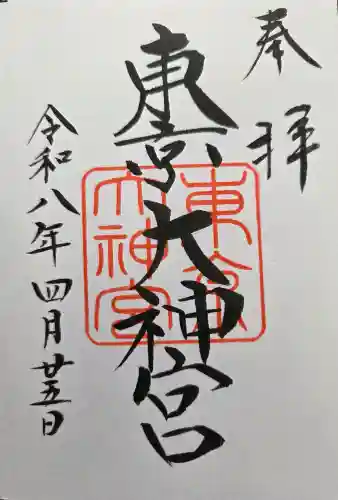 奉拝
東京大神宮
東京大神宮
令和八年四月廿五日